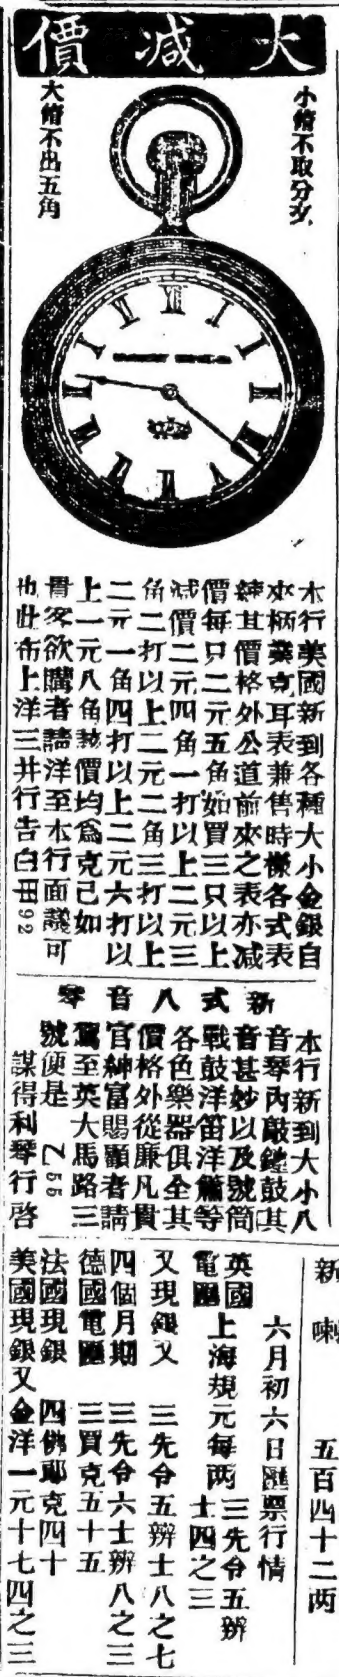 大減價
小修不取分文
大修不出五角
本行美國新到各種大小金銀自
來柄蒙克耳表兼售時樣各式表
練其價格外公道前來之表亦減
價每只二元五角如買三只以上
減價二元四角一打以上二元三
角二打以上二元二角三打以上
二元一角四打以上二元六打以
上一元八角該價均為克己如
貴客欲購者請洋至本行面議可
也此布上洋三井行告白 92
新式八音琴
本行新到大小八
音琴內敲鐘鼓其
音甚妙以及號筒
戰鼓洋笛洋簫等
各色樂器俱全其
價格外從廉凡貴
官紳富賜顧者請
駕至英大馬路三
號便是 乙55
謀得利琴行啓
新喇 五百四十二两
六月初六日匯票行情
英國電匯 上海規元每两 三先令五辨士四之三
又現銀又 三先令五辨士八之七
四個月期 三先令六士辨八之三
德國電匯 三買克五十五
法國現銀 四佛郎克四十
美國現銀又金洋一元十七四之三